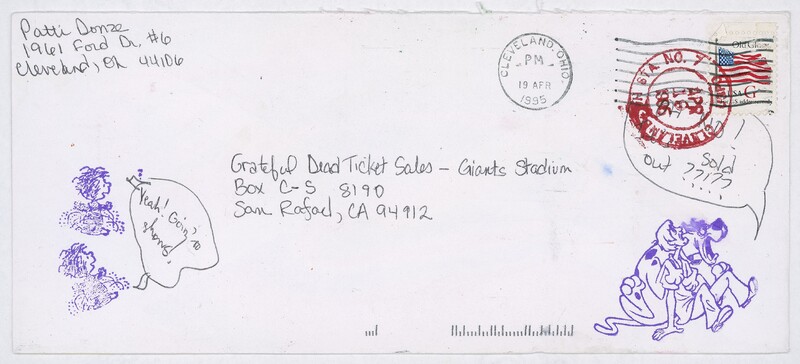 Patti Donze
1961 Ford Dr. #6
Cleveland, Oh 44106
CLEVELAND, OHIO
PM
19 APR
1995
Old Glory
USA G
STA. NO. 7
CLEVELAND
APR
1995
Grateful Dead Ticket Sales – Giants Stadium
Box C-S 8190
San Rafael, CA 94912
Yeah! Going to
shows!
Sold
out ?????